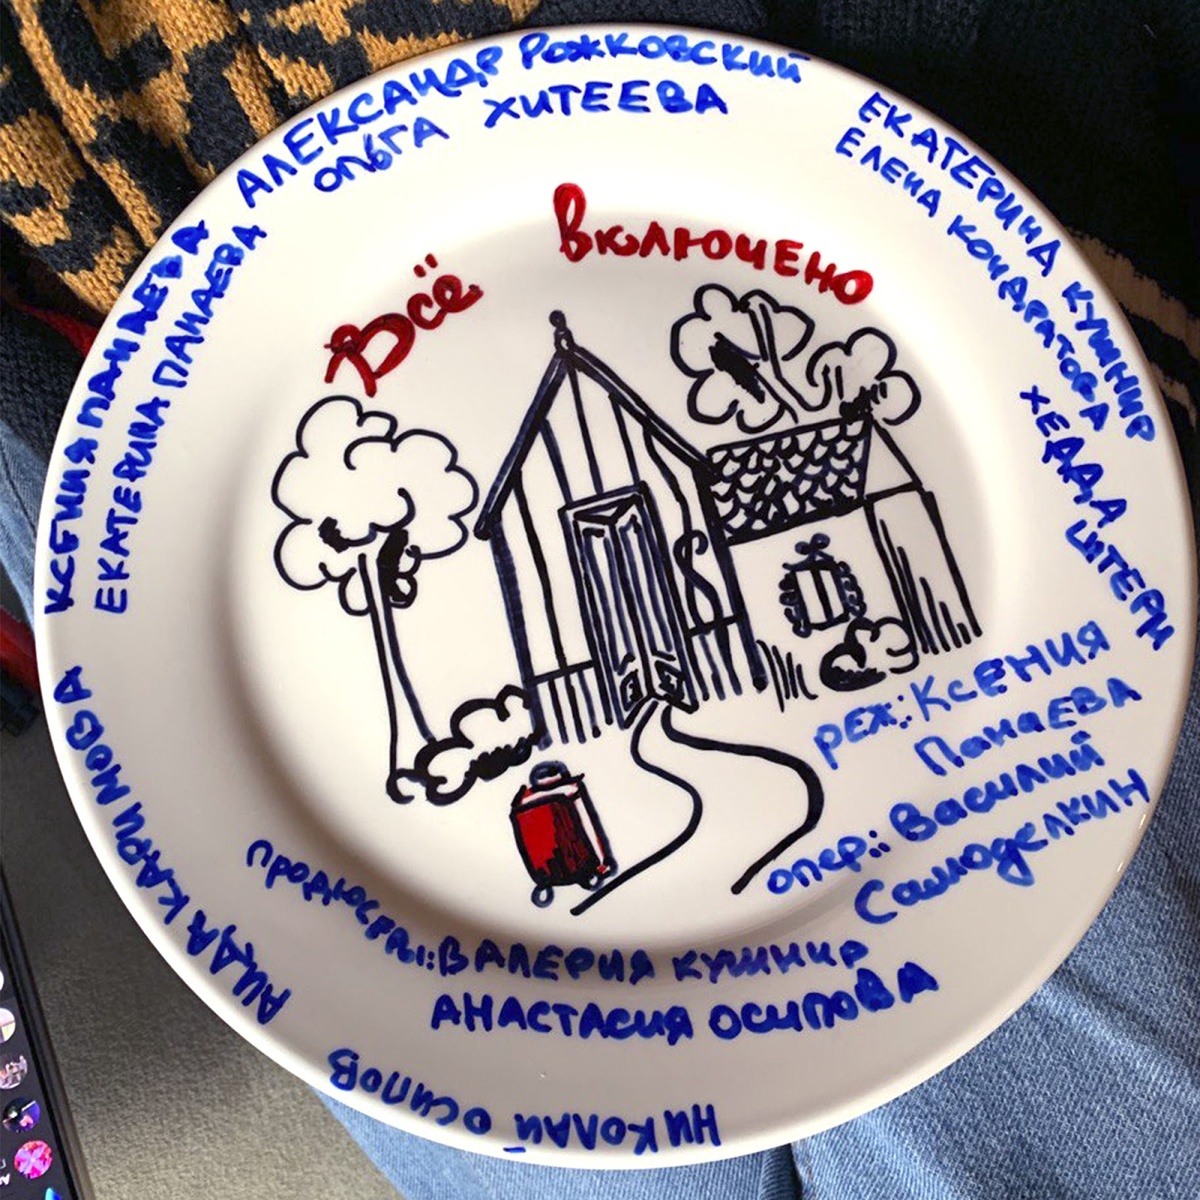 Всё включено
АЛЕКСАНДР РОЖКОВСКИЙ
ОЛЬГА ХИТЕЕВА
ЕКАТЕРИНА КУШНИР
ЕЛЕНА КОНДРАТОВА
ХЕДДА ШТЕРН
реж.: Ксения
Панаева
опер.: Василий
Самоделкин
продюсеры: ВАЛЕРИЯ КУШНИР
АНАСТАСИЯ ОСИПОВА
НИКОЛАЙ ОСИПОВ
АИДА КАРИМОВА
КСЕНИЯ ПАНАЕВА
ЕКАТЕРИНА ПАНАЕВА